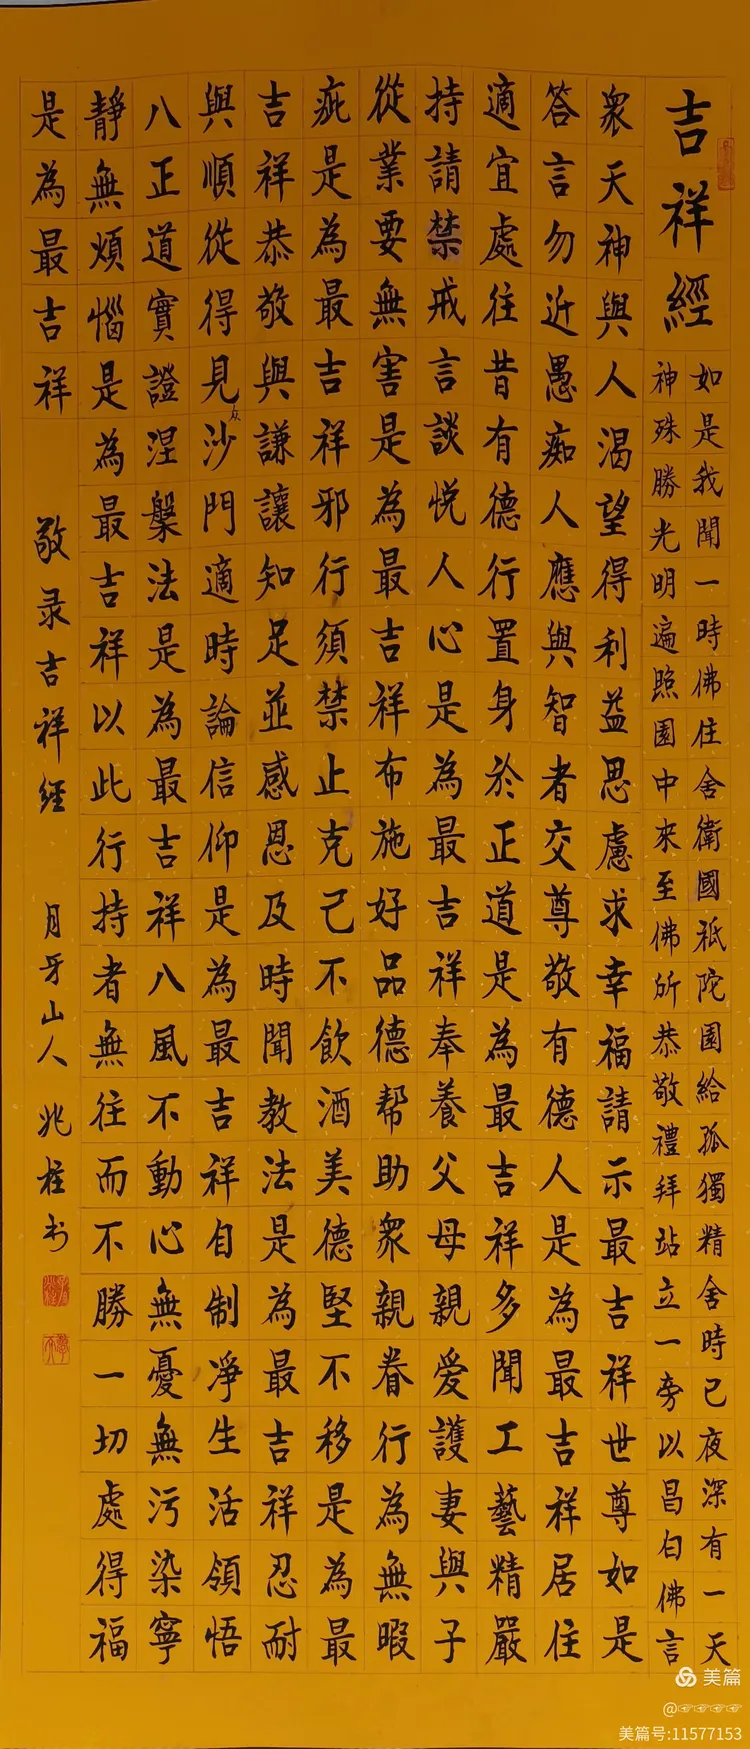 吉祥經
如是我聞一時佛住舍衛國祇陀園給孤獨精舍時已夜深有一天
神殊勝光明遍照園中來至佛所恭敬禮拜站立一旁以昌白佛言
衆天神與人渴望得利益思慮求幸福請示最吉祥世尊如是
答言勿近愚痴人應與智者交尊敬有德人是為最吉祥居住
適宜處往昔有德行置身於正道是為最吉祥多聞工藝精嚴
持請禁戒言談悅人心是為最吉祥奉養父母親愛護妻與子
從業要無害是為最吉祥布施好品德帮助衆親眷行為無暇
疵是為最吉祥邪行須禁止克己不飲酒美德堅不移是為最
吉祥恭敬與謙讓知足並感恩及時聞教法是為最吉祥忍耐
與順從得見沙門適時論信仰是為最吉祥自制凈生活領悟
八正道實證涅槃法是為最吉祥八風不動心無憂無污染寧
靜無煩惱是為最吉祥以此行持者無往而不勝一切處得福
是為最吉祥
敬录吉祥經 月牙山人兆柱书
美篇
@☞☞☞☞
美篇号:11577153